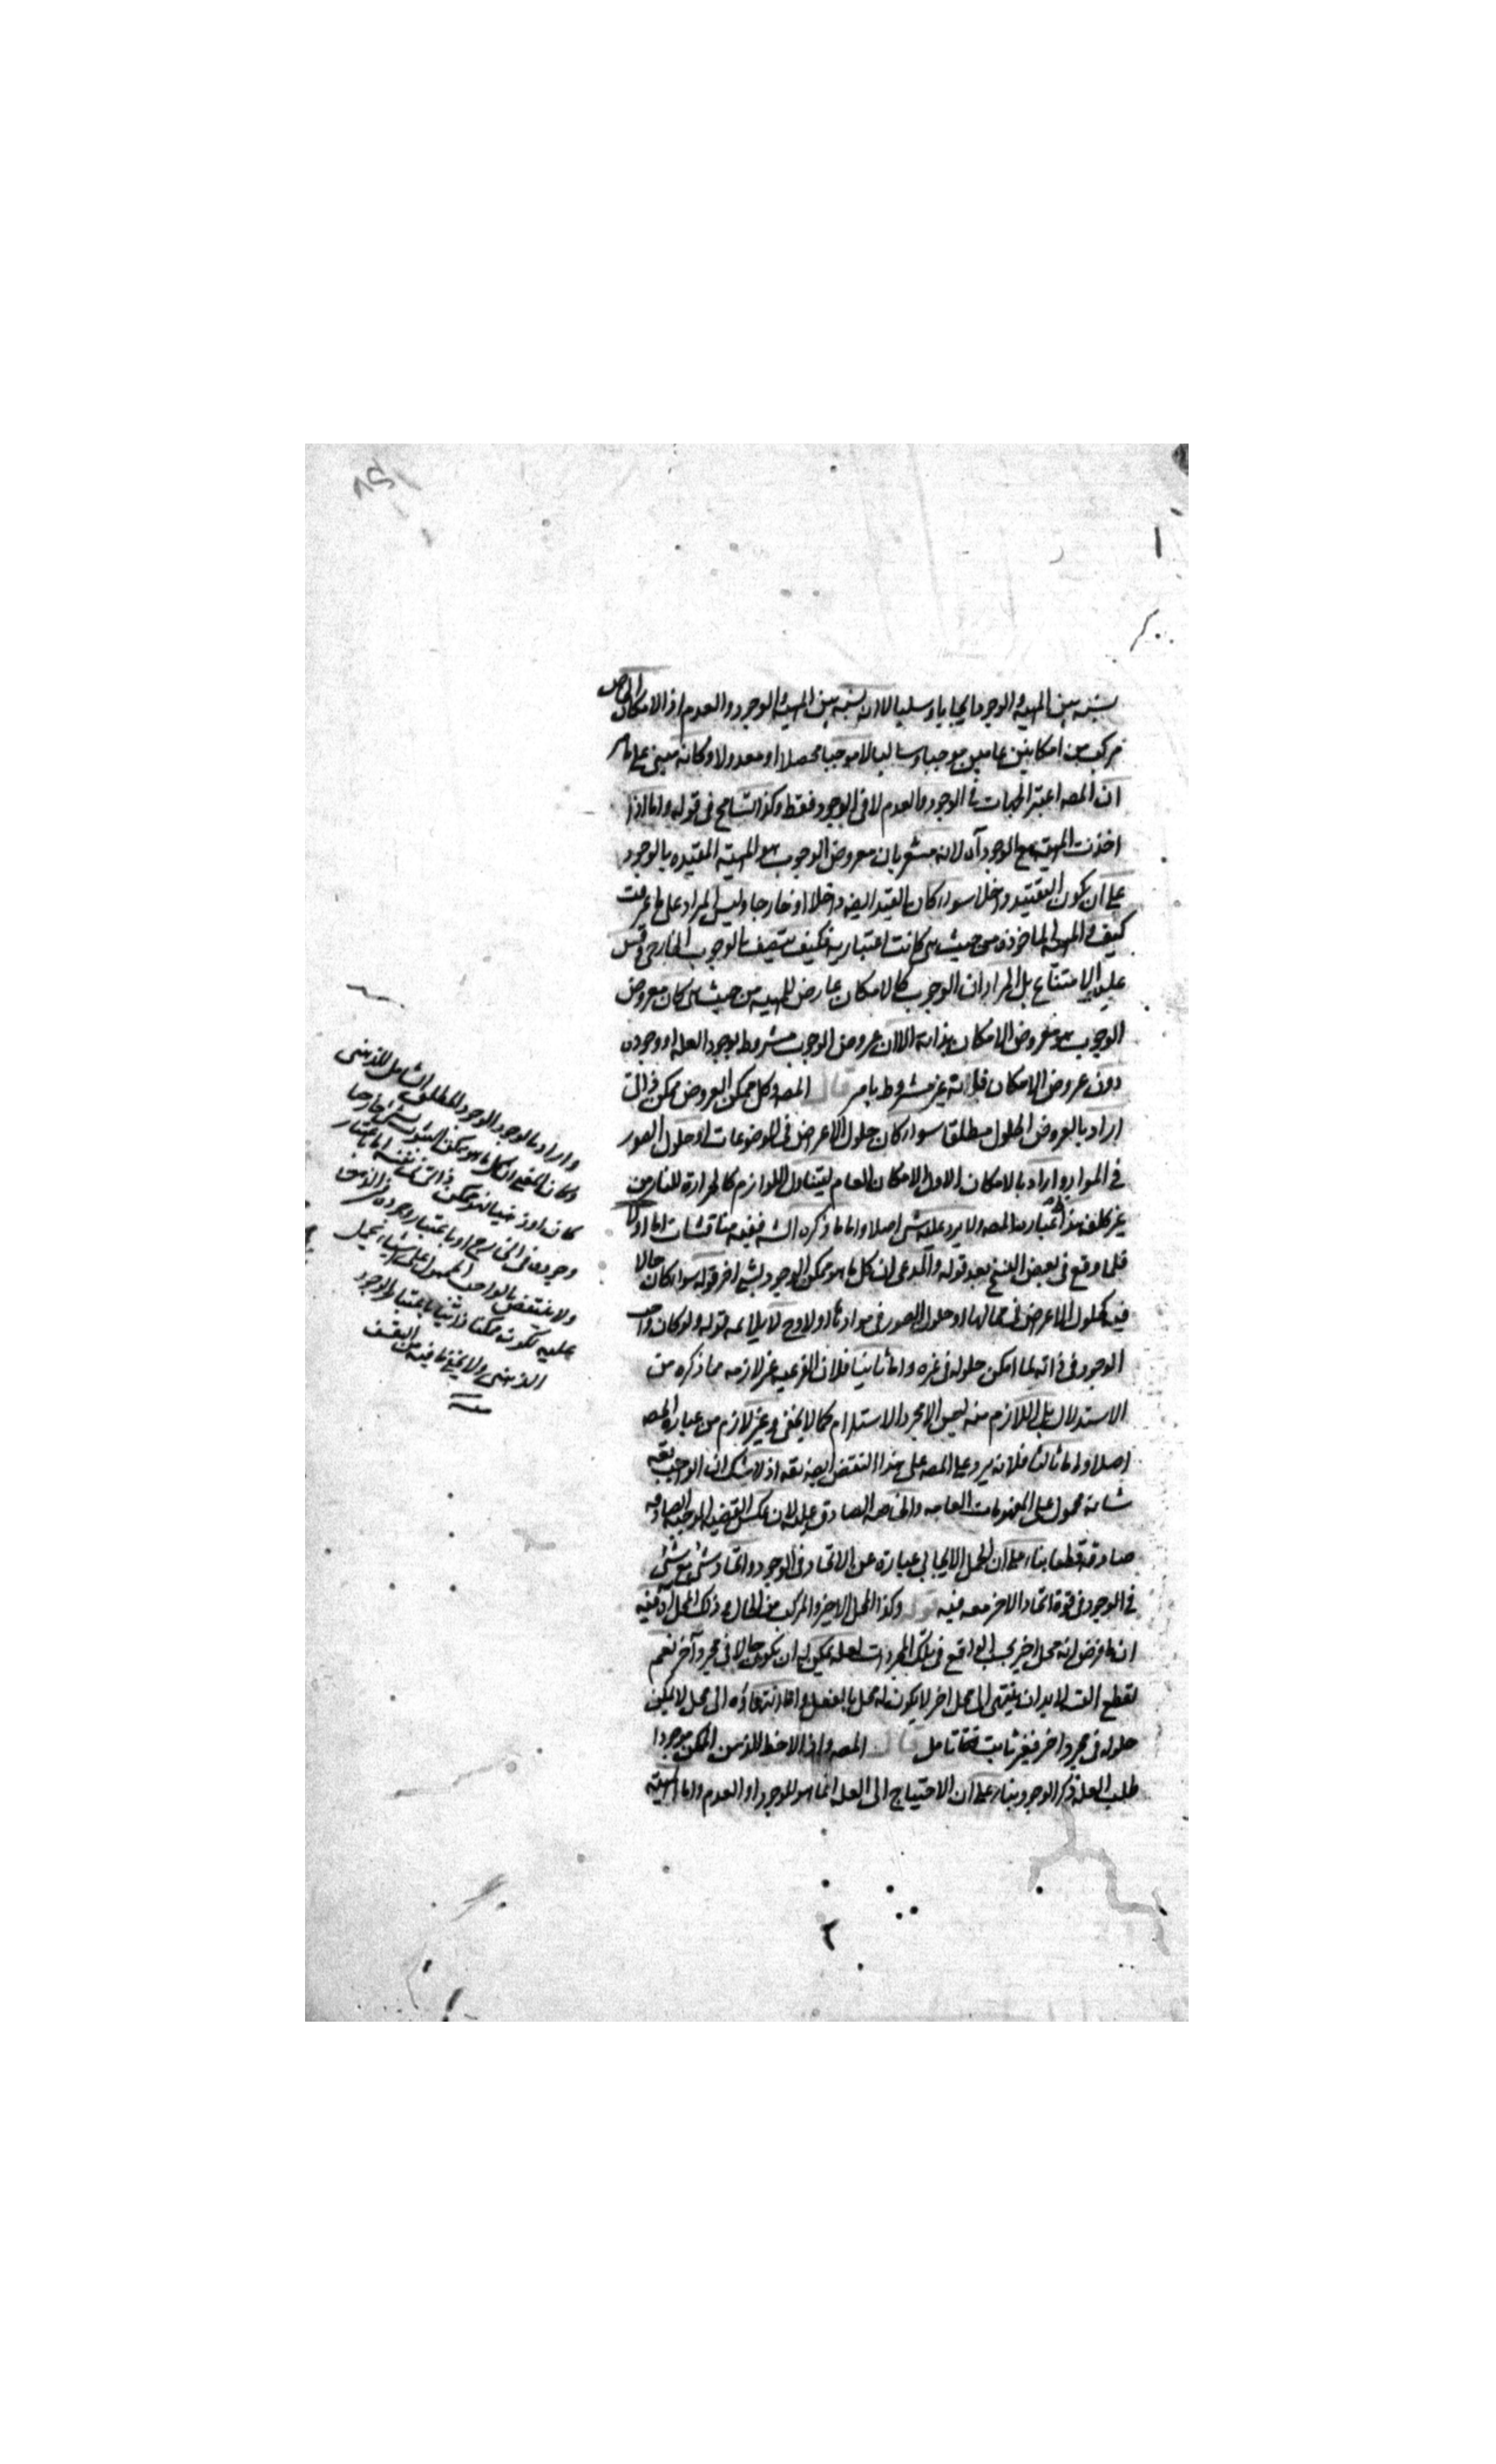 نسبة بين المهية والوجود ايجابا وسلبا لا ان نسبة بين المهية والوجود والعدم اذ الامكان الخاص
مركب من امكانين عامين موجبا وسالبا لا موجبا محصلا او معدولا وكانه مبنى على ما مر
ان المصه اعتبر الجهات فى الوجود والعدم لا فى الوجود فقط وكذا التسامح فى قوله واما اذا
اخذت المهية مع الوجود آه لانه مشعر بان معروض الوجوب هو المهية المقيده بالوجود
على ان يكون التقييد داخلا سواء كان القيد ايضه داخلا او خارجا وليس المراد على ما عرفت
كيف و المهية الماخوذه من حيث هى كانت اعتبارية فكيف يتصف بالوجوب الخارجى وقس
عليه الامتناع بل المراد ان الوجوب كالامكان عارض للمهيه من حيث هى كان معروض
الوجوب هو معروض الامكان بذاته الا ان عروض الوجوب مشروط بوجود العله او وجوده
دون عروض الامكان فانه غير مشروط بامر قال المصه وكل ممكن العروض ممكن ذاتى
اراد بالعروض الحلول مطلقا سواء كان حلول الاعراض فى الموضوعات او حلول الصور
فى المواد و اراد بالامكان الاول الامكان العام ليتناول اللوازم كالحرارة للنار من
غير كلفه هذا عبارة المصه ولا يرد عليه شئ اصلا واما ما ذكره الشه ففيه مناقشات اما اولا
فلما وقع فى بعض النسخ بعد قوله والمدعى ان كل ما هو ممكن الوجود لشئ اخر قوله سواء كان حالا
فيه كحلول الاعراض فى محالها او حلول الصور فى موادها اولا وح لا يلائمه قوله ولو كان واجب
الوجود فى ذاته لما امكن حلوله فى غيره واما ثانيا فلان الفرعيه غير لازمه مما ذكره من
الاستدلال بل اللازم منه ليس الا مجرد الاستلزام كما لا يخفى وغير لازم من عبارة المصه
اصلا واما ثالثا فلانه يرد على المصه على هذا النقض ايضه بقه اذ لا شك ان الواجب تعه
شانه محمول على المفهومات العامه والخاصه الصادق عليه لان عكس القضيه الموجبه الصادقه
صادقة قطعا بناء على ان الحمل الايجابى عبارة عن الاتحاد فى الوجود واتحاد شئ مع شئ
فى الوجود فى قوة اتحاد الاخر معه فيه قوله وكذا المحل الاخير والمركب من الحال و ذلك المحل آه فيه
ان ما فرض انه محل اخير بحسب الواقع فى تلك المجردات لعله يمكن له ان يكون حالا فى مجرد آخر نعم
لقطع التسه لا بد ان ينتهى الى محل اخر لا يكون له محل بالفعل واما انتهاؤه الى محل لا يمكن
حلوله فى مجرد اخر فغير ثابت فتامل قال المصه واذا لاحظ الذهن الممكن موجودا
طلب العلة ذكر الوجود بناء على ان الاحتياج الى العله انما هو للوجود او العدم واما المهية
واراد بالوجود الوجود المطلق الشامل للذهنى
وكان المعنى ان كل ما هو ممكن الثبوت لشئ خارجا
كان او ذهنيا فهو ممكن ذاتى فى نفسه اما باعتبار
وجوده فى الخارج او باعتبار وجوده فى الذهن
ولا ينتقض بالواجب المحمول على اشياء يحمل
عليه لكونه ممكنا ذاتيا باعتبار الوجود
الذهنى ولا يخفى ما فيه من التعسف
منه